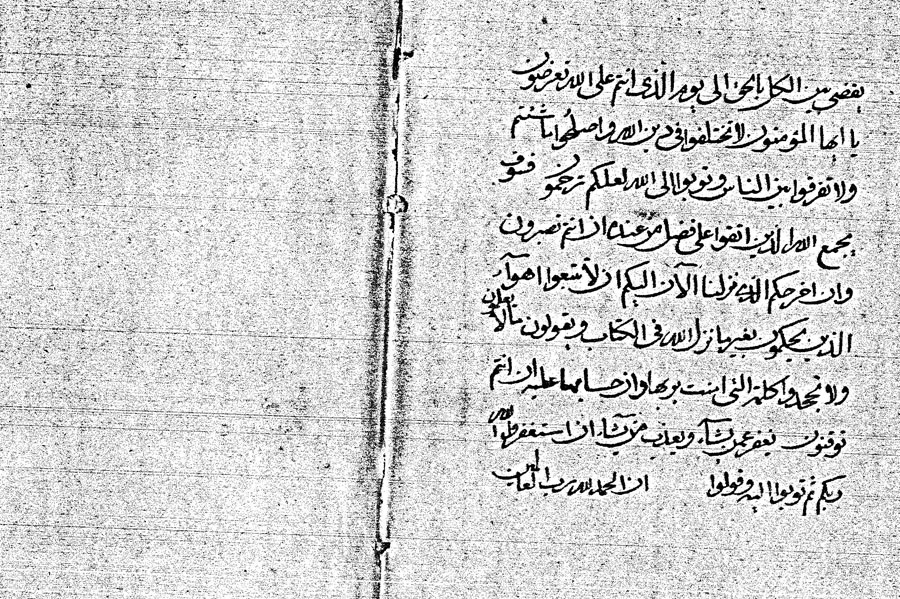 يقضي بين الكل بالحق الى يوم الذي انتم على الله تعرضون
يا ايها المؤمنون لا تختلفوا في دين الله واصلحوا ما شئتم
ولا تفرقوا بين الناس وتوبوا الى الله لعلكم ترحمون فسوف
يجمع الله الذين اتقوا على فضل من عنده ان انتم تصبرون
وان اخرجكم الذي نزلنا الآن اليكم ان لا تتبعوا اهوآء
الذين يحكمون بغير ما نزل الله في الكتاب ويقولون مالا يعلمون
ولا تجحدوا كلمة التي امنت بربها وان حسابها عليه ان انتم
توقنون يغفر عمن يشآء ويعذب من يشآء ان استغفروا الله
ربكم ثم توبوا اليه وقولوا ان الحمد لله رب العالمين